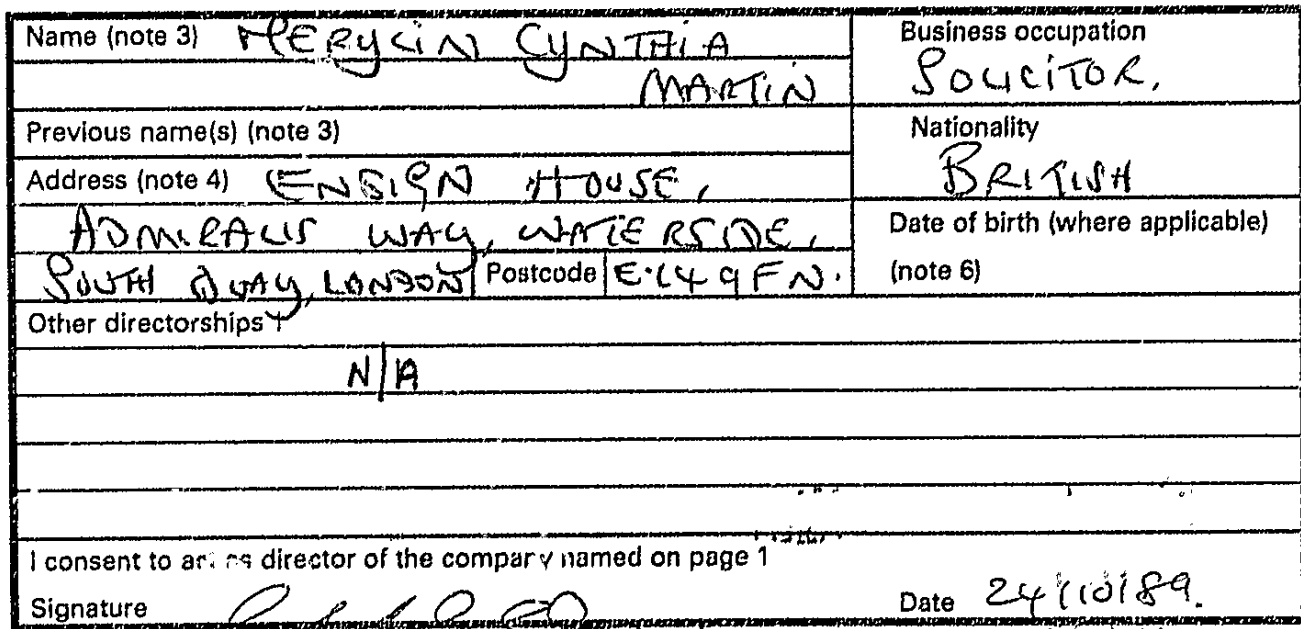 Name (note 3) MERYLIN CYNTHIA
MARTIN
Business occupation
SOLICITOR.
Previous name(s) (note 3)
Nationality
BRITISH
Address (note 4) ENSIGN HOUSE,
ADMIRALS WAY, WATERSIDE,
SOUTH QUAY, LONDON Postcode E.14 9FN.
Date of birth (where applicable)
(note 6)
Other directorships
N/A
I consent to act as director of the company named on page 1
Signature
Date 24/10/89.